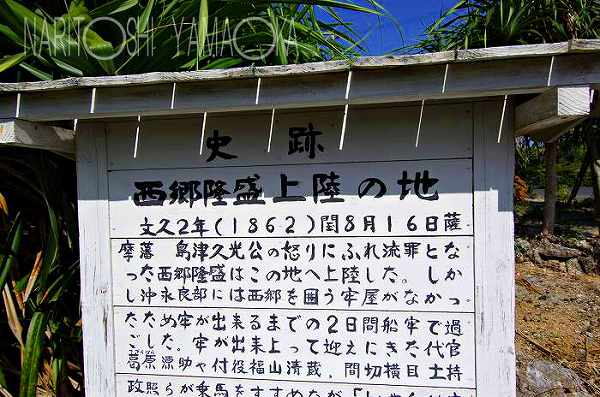 NARITOSHI YAMAOKA
史跡
西郷隆盛上陸の地
文久2年(1862)閏8月16日薩
摩藩 島津久光公の怒りにふれ流罪とな
った西郷隆盛はこの地へ上陸した。しか
し沖永良部には西郷を囲う牢屋がなかっ
たため牢が出来るまでの2日間船牢で過
ごした。牢が出来上って迎えにきた代官
葛原源助や付役福山清蔵、間切横目土持
政照らが乗馬をすすめたが「